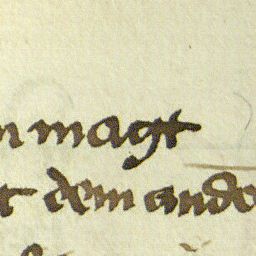 n magt
t dem ande